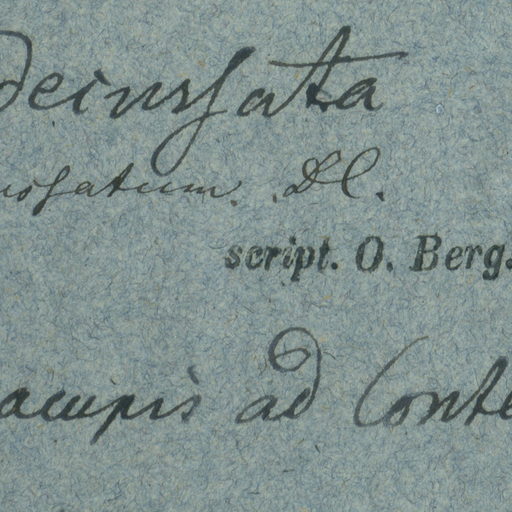 deinsfata
usfatum. DC.
script. O. Berg.
acupis ad Conte